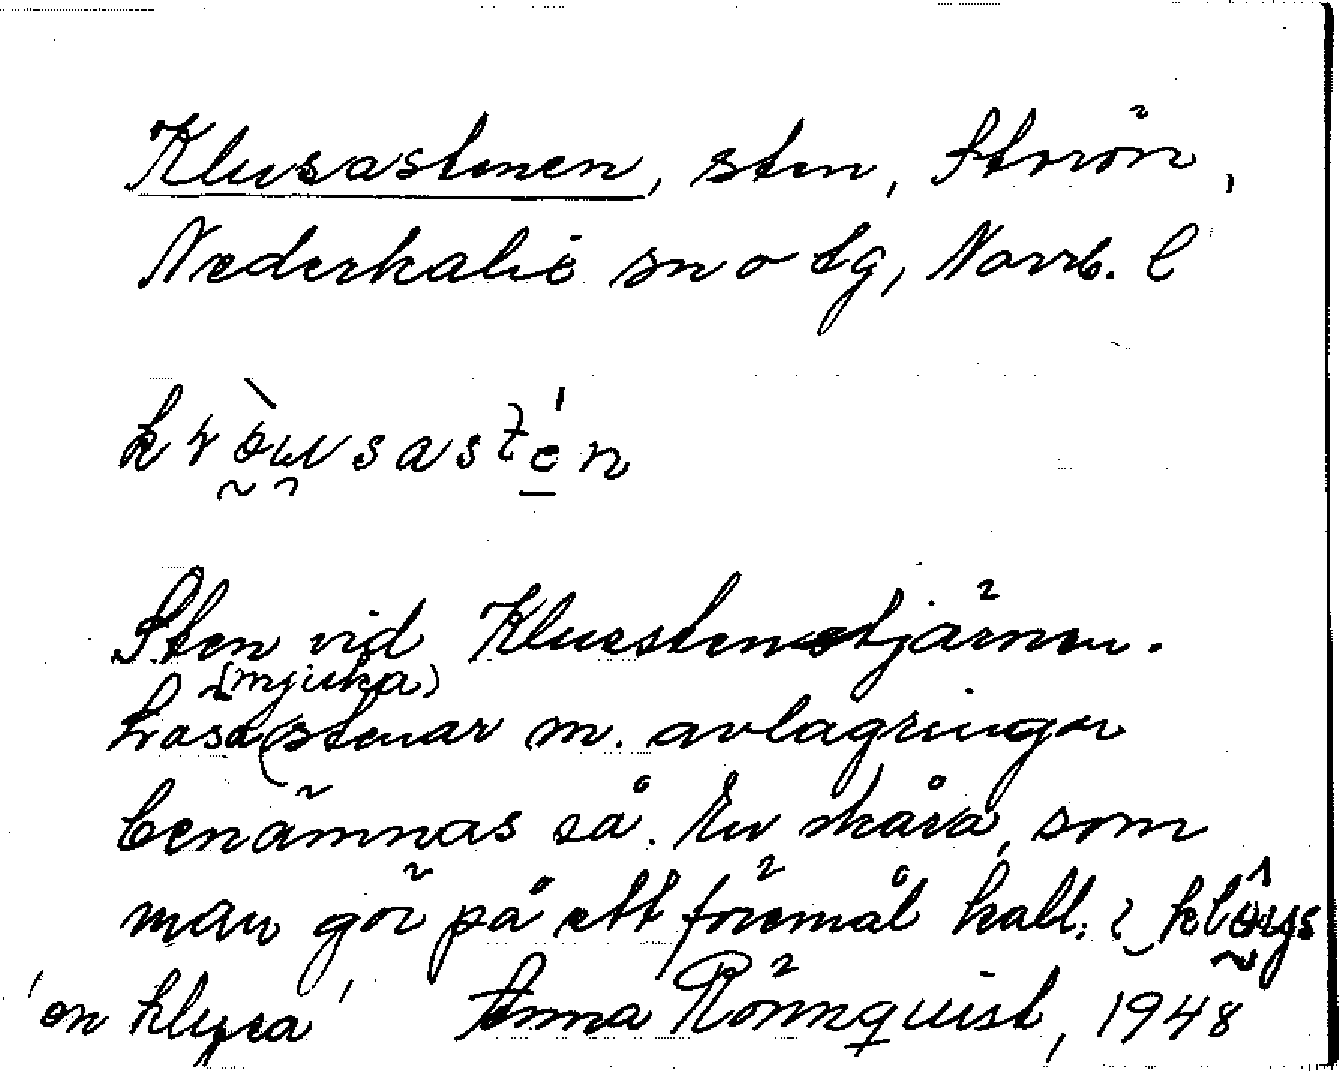 Klusastenen, sten, Storön,
Nederkalix sn o tg, Norrb. l
Sten vid Kluestenstjärnen.
(mjuka)
Lösa stenar m. avlagringar
benämnas så. En skåra, som
man gör på ett föremål kall.
'en klyfsa' Anna Rönnquist, 1948